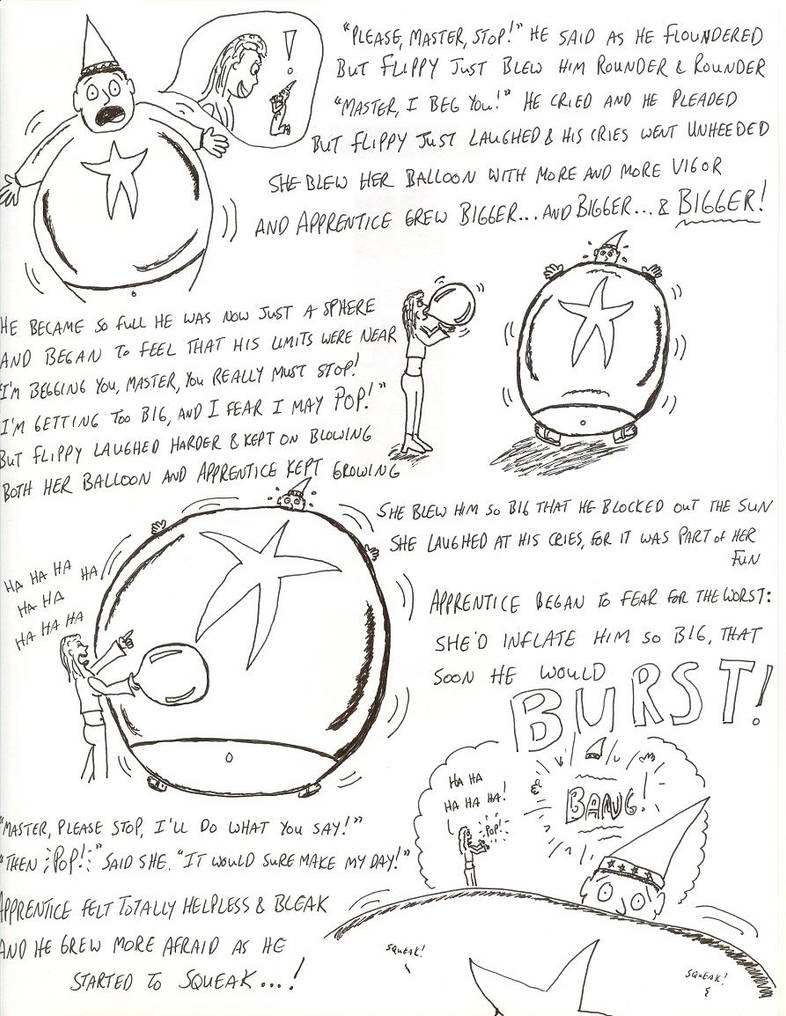 "PLEASE, MASTER, STOP!" HE SAID AS HE FLOUNDERED
BUT FLIPPY JUST BLEW HIM ROUNDER & ROUNDER
"MASTER, I BEG YOU!" HE CRIED AND HE PLEADED
BUT FLIPPY JUST LAUGHED & HIS CRIES WENT UNHEEDED
SHE BLEW HER BALLOON WITH MORE AND MORE VIGOR
AND APPRENTICE GREW BIGGER... AND BIGGER... & BIGGER!
!
HE BECAME SO FULL HE WAS NOW JUST A SPHERE
AND BEGAN TO FEEL THAT HIS LIMITS WERE NEAR
"I'M BEGGING YOU, MASTER, YOU REALLY MUST STOP!
I'M GETTING TOO BIG, AND I FEAR I MAY POP!"
BUT FLIPPY LAUGHED HARDER & KEPT ON BLOWING
BOTH HER BALLOON AND APPRENTICE KEPT GROWING
SHE BLEW HIM SO BIG THAT HE BLOCKED OUT THE SUN
SHE LAUGHED AT HIS CRIES, FOR IT WAS PART OF HER
FUN
HA HA HA HA
HA HA
HA HA HA
APPRENTICE BEGAN TO FEAR FOR THE WORST:
SHE'D INFLATE HIM SO BIG, THAT
SOON HE WOULD
BURST!
HA HA
HA HA HA!
POP!
BANG!
"MASTER, PLEASE STOP, I'LL DO WHAT YOU SAY!"
"THEN POP!" SAID SHE. "IT WOULD SURE MAKE MY DAY!"
APPRENTICE FELT TOTALLY HELPLESS & BLEAK
AND HE GREW MORE AFRAID AS HE
STARTED TO SQUEAK...!
SQUEAK!
SQUEAK!